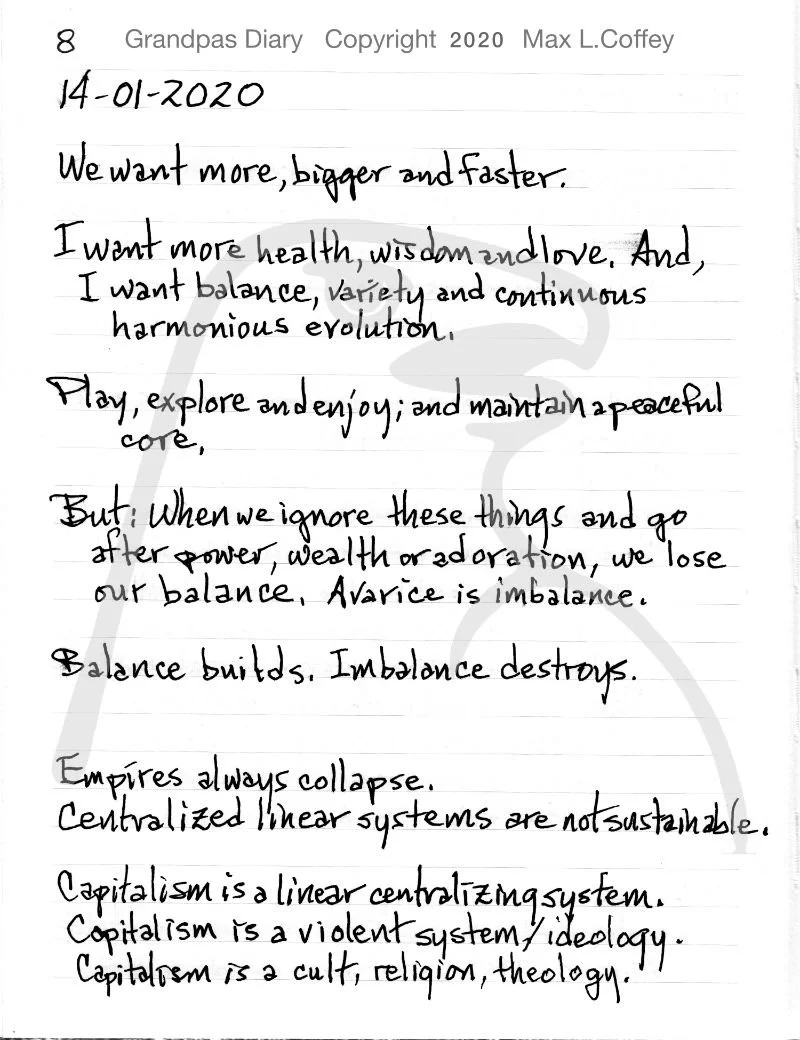 8 Grandpas Diary Copyright 2020 Max L.Coffey
14-01-2020
We want more, bigger and faster.
I want more health, wisdom and love. And,
I want balance, variety and continuous
harmonious evolution.
Play, explore and enjoy; and maintain a peaceful
core,
But: When we ignore these things and go
after power, wealth or adoration, we lose
our balance. Avarice is imbalance.
Balance builds. Imbalance destroys.
Empires always collapse.
Centralized linear systems are not sustainable.
Capitalism is a linear centralizing system.
Capitalism is a violent system/ideology.
Capitalism is a cult, religion, theology.